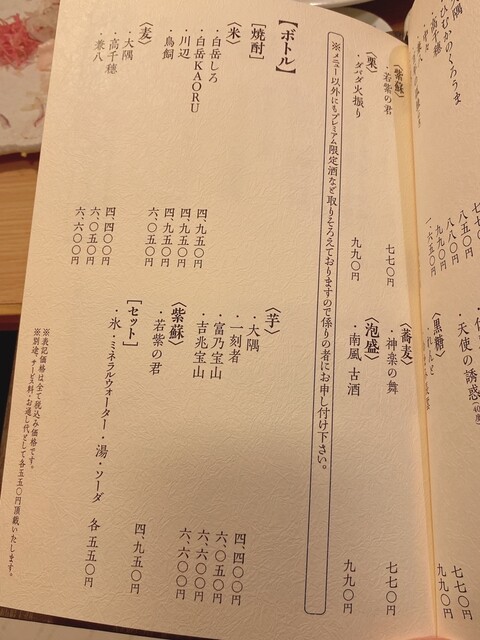 ひむかのくろうま
八五〇円
八八〇円
九九〇円
一、六五〇円
・天使の誘惑(40度)
〈黒糖〉
九九〇円
〈紫蘇〉
・若紫の君 七七〇円
〈栗〉
・ダバダ火振り 九九〇円
〈蕎麦〉
・神楽の舞 七七〇円
〈泡盛〉
・南風、古酒 九九〇円
※メニュー以外にもプレミアム限定酒など取りそろえておりますので係りの者にお申し付け下さい。
【ボトル】
[焼酎]
〈米〉
・白岳しろ 四、九五〇円
・白岳KAORU 四、九五〇円
・川辺 四、九五〇円
・鳥飼 六、〇五〇円
〈麦〉
・大隅 四、四〇〇円
・高千穂 六、〇五〇円
・兼八 六、六〇〇円
〈芋〉
・大隅 四、四〇〇円
・一刻者 六、〇五〇円
・富乃宝山 六、六〇〇円
・吉兆宝山 六、六〇〇円
〈紫蘇〉
・若紫の君 四、九五〇円
[セット]
・氷・ミネラルウォーター・湯・ソーダ 各五五〇円
※表記価格は全て税込み価格です。
※別途、サービス料・お通し代として各五五〇円頂戴いたします。